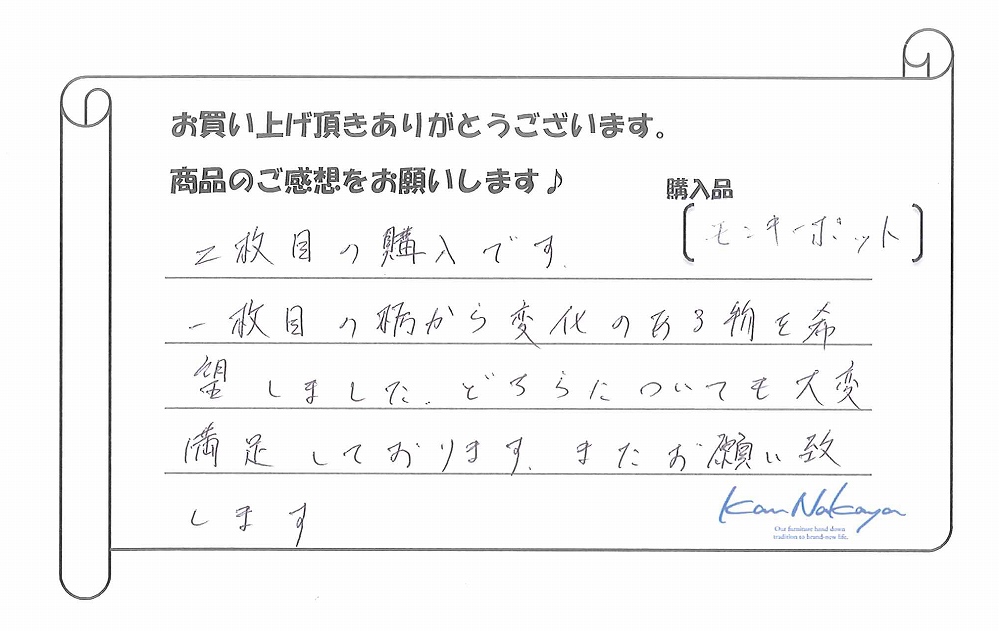 お買い上げ頂きありがとうございます。
商品のご感想をお願いします♪
購入品
モンキーポット
二枚目の購入です.
一枚目の柄から変化のある物を希
望しました. どちらについても大変
満足しております. またお願い致
します
Kan Nakaya
Our furniture hand down
tradition to brand-new life.